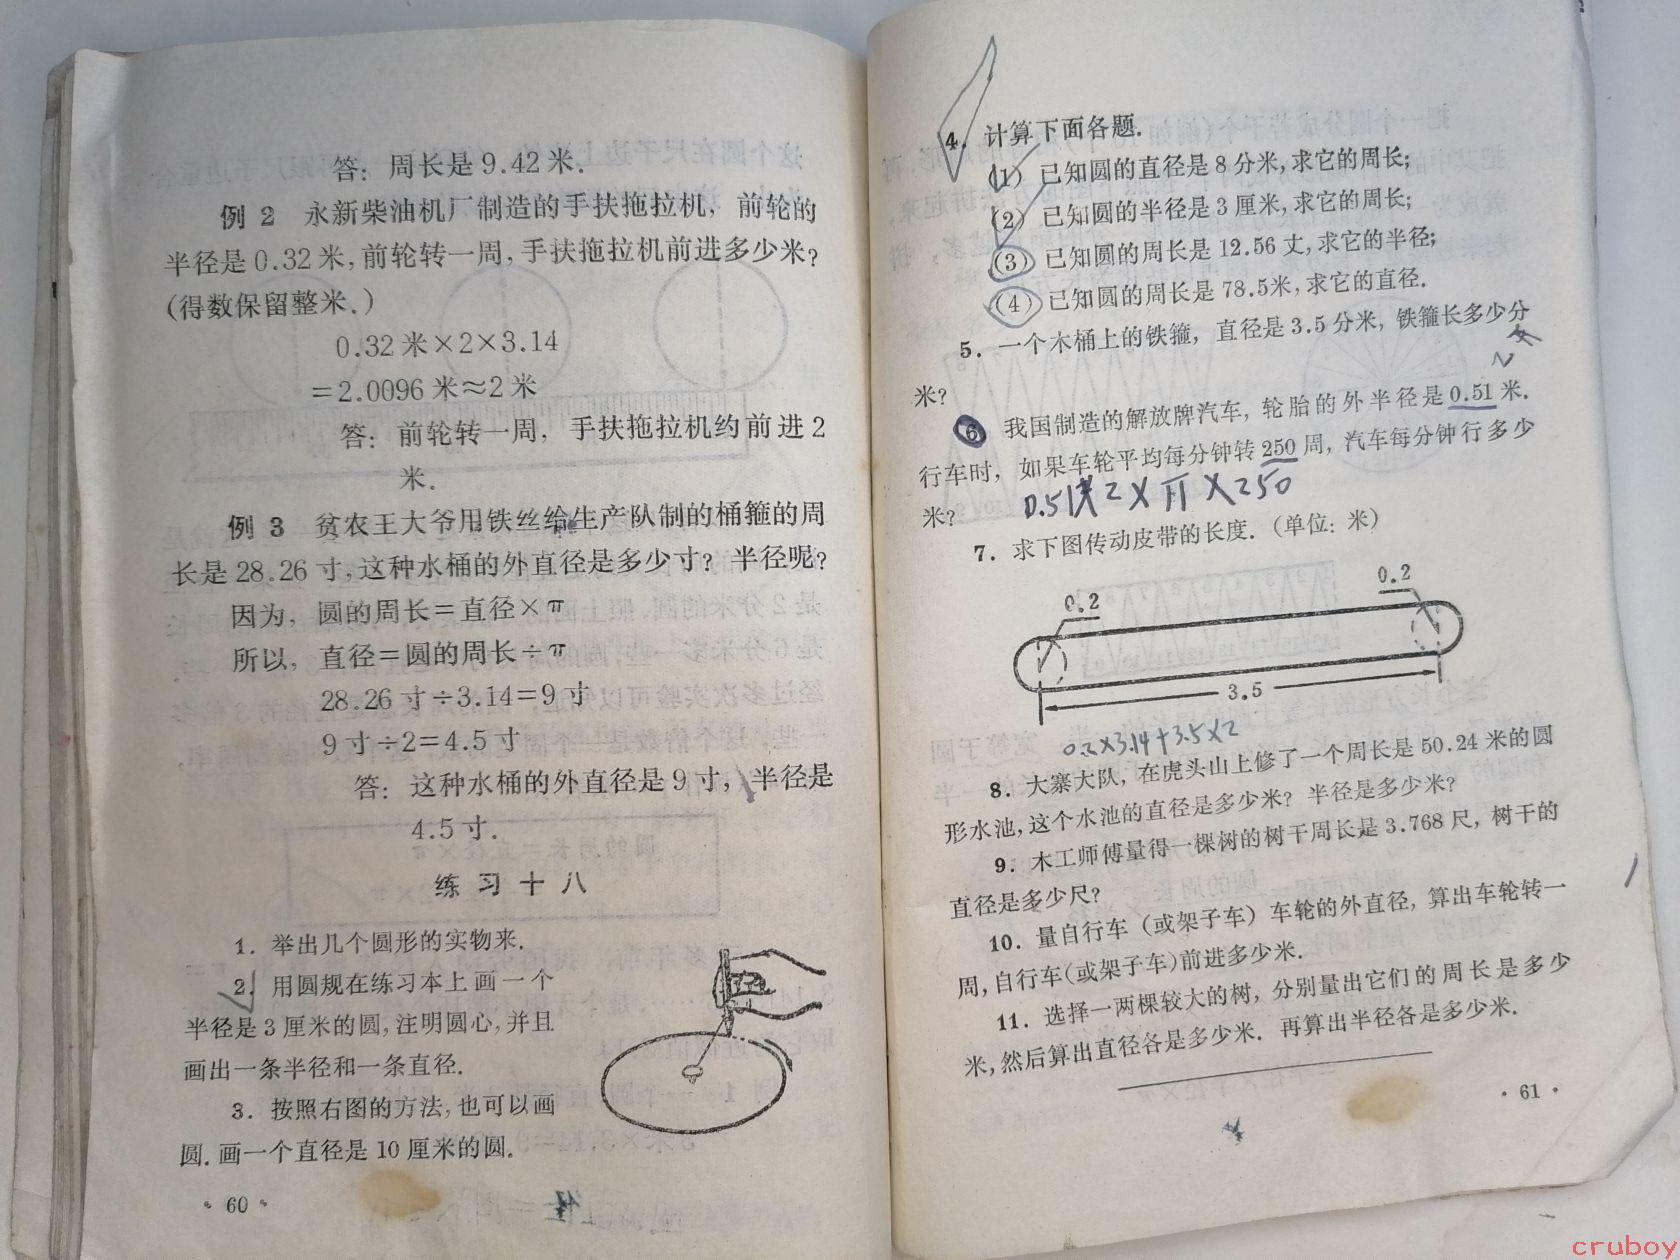 答：周长是9.42米.
例 2 永新柴油机厂制造的手扶拖拉机，前轮的
半径是0.32米，前轮转一周，手扶拖拉机前进多少米？
(得数保留整米.)
0.32米×2×3.14
=2.0096米≈2米
答：前轮转一周，手扶拖拉机约前进2
米.
例 3 贫农王大爷用铁丝给生产队制的桶箍的周
长是28.26寸，这种水桶的外直径是多少寸？半径呢？
因为，圆的周长=直径×π
所以，直径=圆的周长÷π
28.26寸÷3.14=9寸
9寸÷2=4.5寸
答：这种水桶的外直径是9寸，半径是
4.5寸.
练习十八
1. 举出几个圆形的实物来.
2. 用圆规在练习本上画一个
半径是3厘米的圆，注明圆心，并且
画出一条半径和一条直径.
3. 按照右图的方法，也可以画
圆.画一个直径是10厘米的圆.
· 60 ·
4. 计算下面各题.
(1) 已知圆的直径是8分米，求它的周长；
(2) 已知圆的半径是3厘米，求它的周长；
(3) 已知圆的周长是12.56丈，求它的半径；
(4) 已知圆的周长是78.5米，求它的直径.
5. 一个木桶上的铁箍，直径是3.5分米，铁箍长多少分
米？
6 我国制造的解放牌汽车，轮胎的外半径是0.51米.
行车时，如果车轮平均每分钟转250周，汽车每分钟行多少
米？
0.51×2×π×250
7. 求下图传动皮带的长度.（单位：米）
0.2
0.2
3.5
0.2×3.14+3.5×2
8. 大寨大队，在虎头山上修了一个周长是50.24米的圆
形水池，这个水池的直径是多少米？半径是多少米？
9. 木工师傅量得一棵树的树干周长是3.768尺，树干的
直径是多少尺？
10. 量自行车（或架子车）车轮的外直径，算出车轮转一
周，自行车(或架子车)前进多少米.
11. 选择一两棵较大的树，分别量出它们的周长是多少
米，然后算出直径各是多少米. 再算出半径各是多少米.
· 61 ·
cruboy